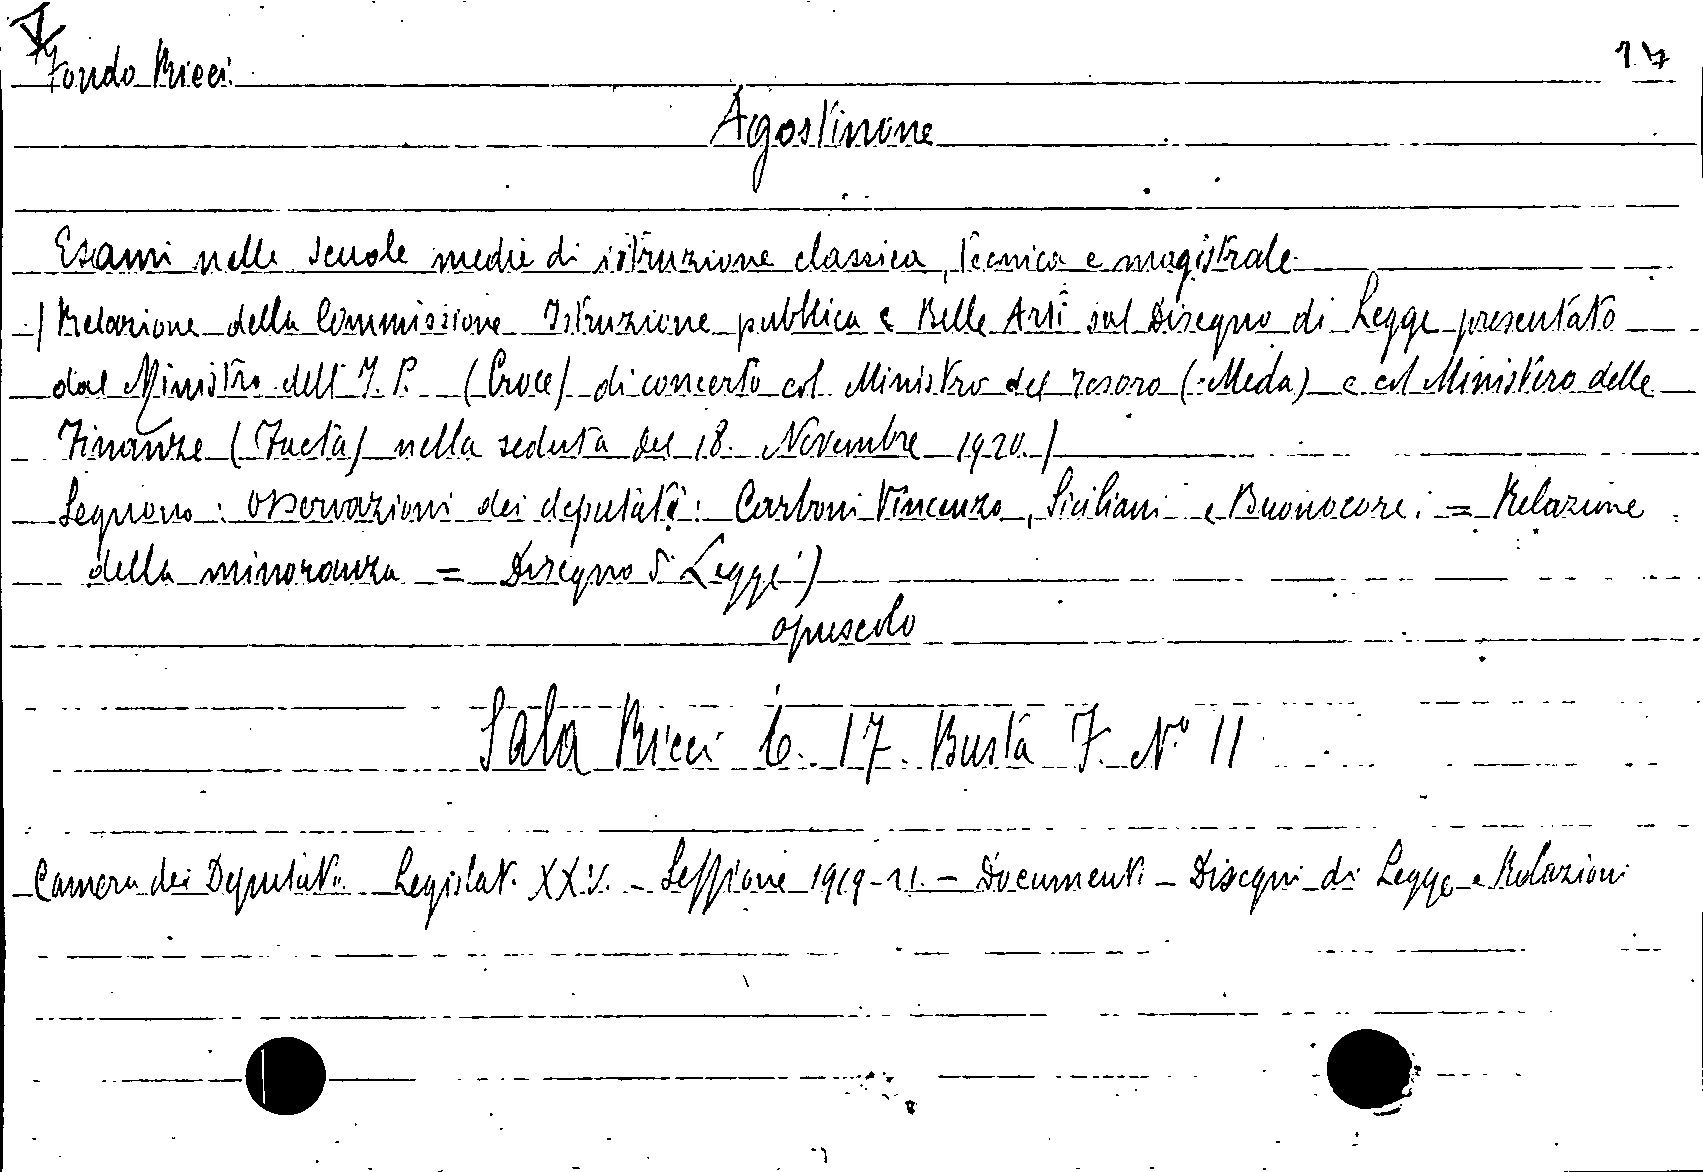 Fondo Ricci.
17
Agostinone
Esami nelle scuole medie di istruzione classica, tecnica e magistrale
(Relazione della Commissione Istruzione pubblica e Belle Arti sul Disegno di Legge presentato
dal Ministro dell'I. P. (Croce) di concerto col Ministro del Tesoro (Meda) e col Ministero delle
Finanze (Facta) nella seduta del 18. Novembre 1920.)
Seguono: Osservazioni dei deputati: Carboni Vincenzo, Siciliani e Buonocore: = Relazione
della minoranza = Disegno di Legge)
opuscolo
Sala Ricci C. 17. Busta F. N.° 11
Camera dei Deputati Legislat. XXV. - Sessione 1919-21. - Documenti - Disegni di Legge e Relazioni